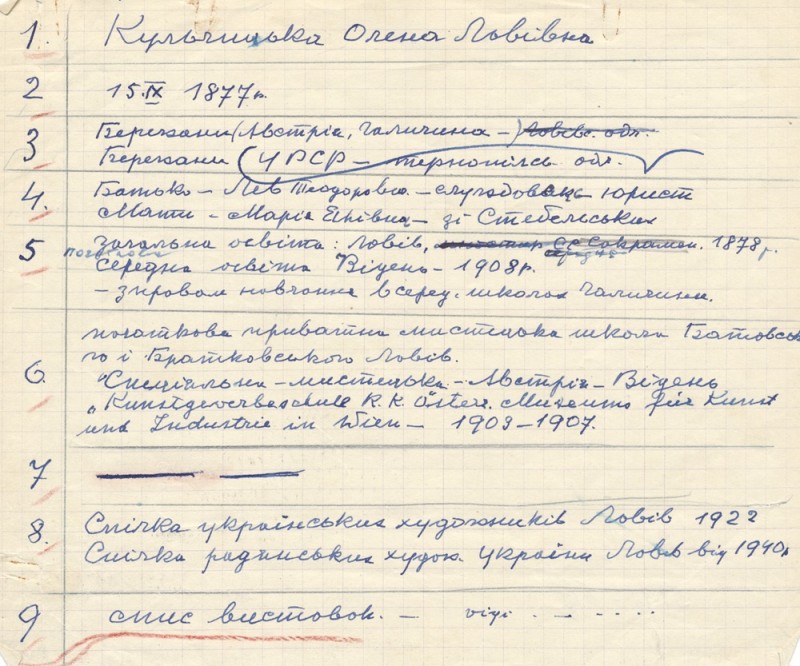 1. Кульчицька Олена Львівна
2 15.IX 1877 р.
3 Бережани (Австрія, Галичина –) Львівс. обл.
Бережани (УРСР – тернопільсь. обл.
4. Батько – Лев Теодорович – службовець юрист
Мати – Марія Янівна – зі Стебельських
5 загальна освіта: Львів, 1878 р.
початкова
середня освіта Відень – 1908 р.
– з правом навчання в серед. школах Галичини.
початкова приватна мистецька школа Батовсь
6. го і Братковського Львів.
"Спеціальна – мистецька – Австрія – Відень
"Kunstgewerbeschule K.K. Österr. Museums für Kunst
und Industrie in Wien – 1903–1907.
7
8. Спілка українських художників Львів 1922
Спілка радянських худож. України Львів від 1940 р
9 спис виставок. –